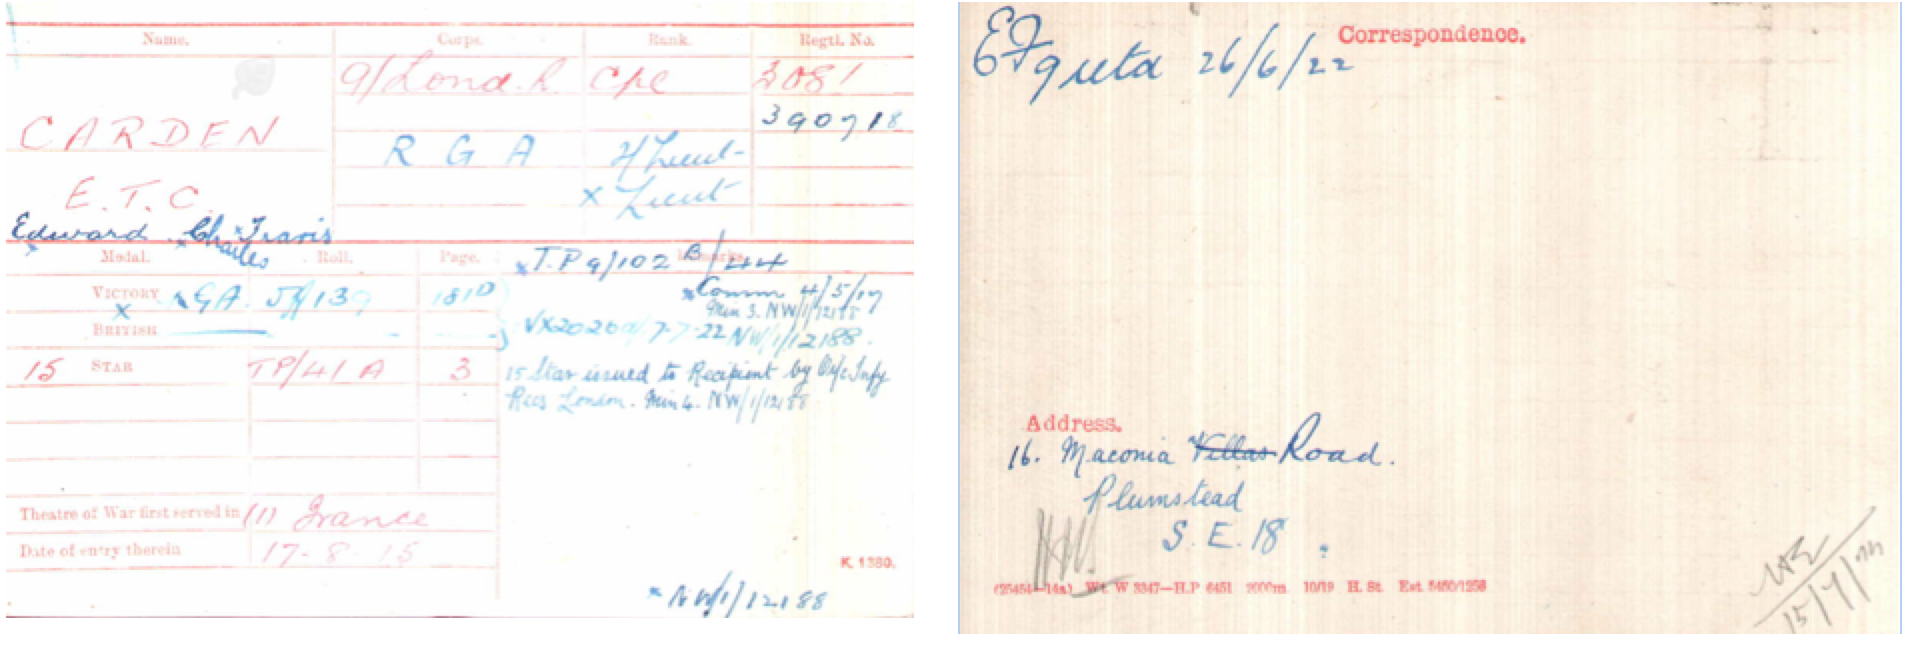 Name. Corps. Rank. Regtl. No.
9/Lond. R. Cpl 3081
390718
CARDEN
R G A 2/Lieut-
x Lieut
E. T. C.
Edward Charles Travis
Medal. Roll. Page. Remarks.
x T.P 9/102 B/44
VICTORY x GA. 181D
x Comm 4/5/17
Min 3. NW/1/12188
BRITISH
7-7-22 NW/1/12188.
15 STAR TP/41 A 3
15 Star issued to Recipient by O i/c Infy
Recs London. Min 4. NW/1/12188
Theatre of War first served in (1) France
Date of entry therein 17-8-15
K. 1380.
x NW/1/12188
Correspondence.
EF 26/6/22
Address.
16. Maconia Villas Road.
Plumstead
S. E. 18.
(25454—14a) Wt. W 3347—H.P 6451 2000m. 10/19 H. St. Est. 5450/1256
15/7/